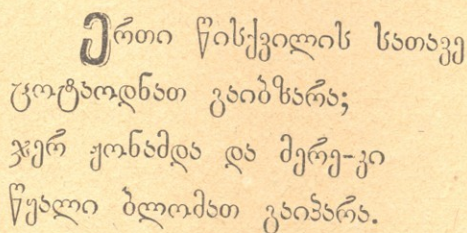 ერთი წისქვილის სათავე
ცოტაოდნათ გაიბზარა;
ჯერ ჟონამდა და მერე-კი
წყალი ბლომათ გაიპარა.